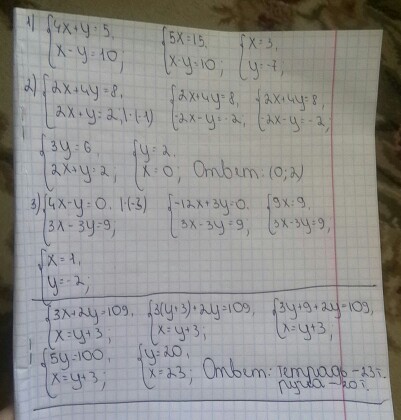 1) {4x+y=5, x-y=10; {5x=15, x-y=10; {x=3, y=-7;
2) {2x+4y=8, 2x+y=2, |·(-1) {2x+4y=8, -2x-y=-2, {2x+4y=8, -2x-y=-2;
{3y=6, 2x+y=2, {y=2, x=0; Ответ: (0;2)
3) {4x-y=0, |·(-3) 3x-3y=9; {-12x+3y=0, 3x-3y=9; {9x=9, 3x-3y=9,
{x=1, y=-2;
{3x+2y=109, x=y+3, {3(y+3)+2y=109, x=y+3; {3y+9+2y=109, x=y+3,
{5y=100, x=y+3, {y=20, x=23; Ответ: тетрадь-23т.
ручка-20т.